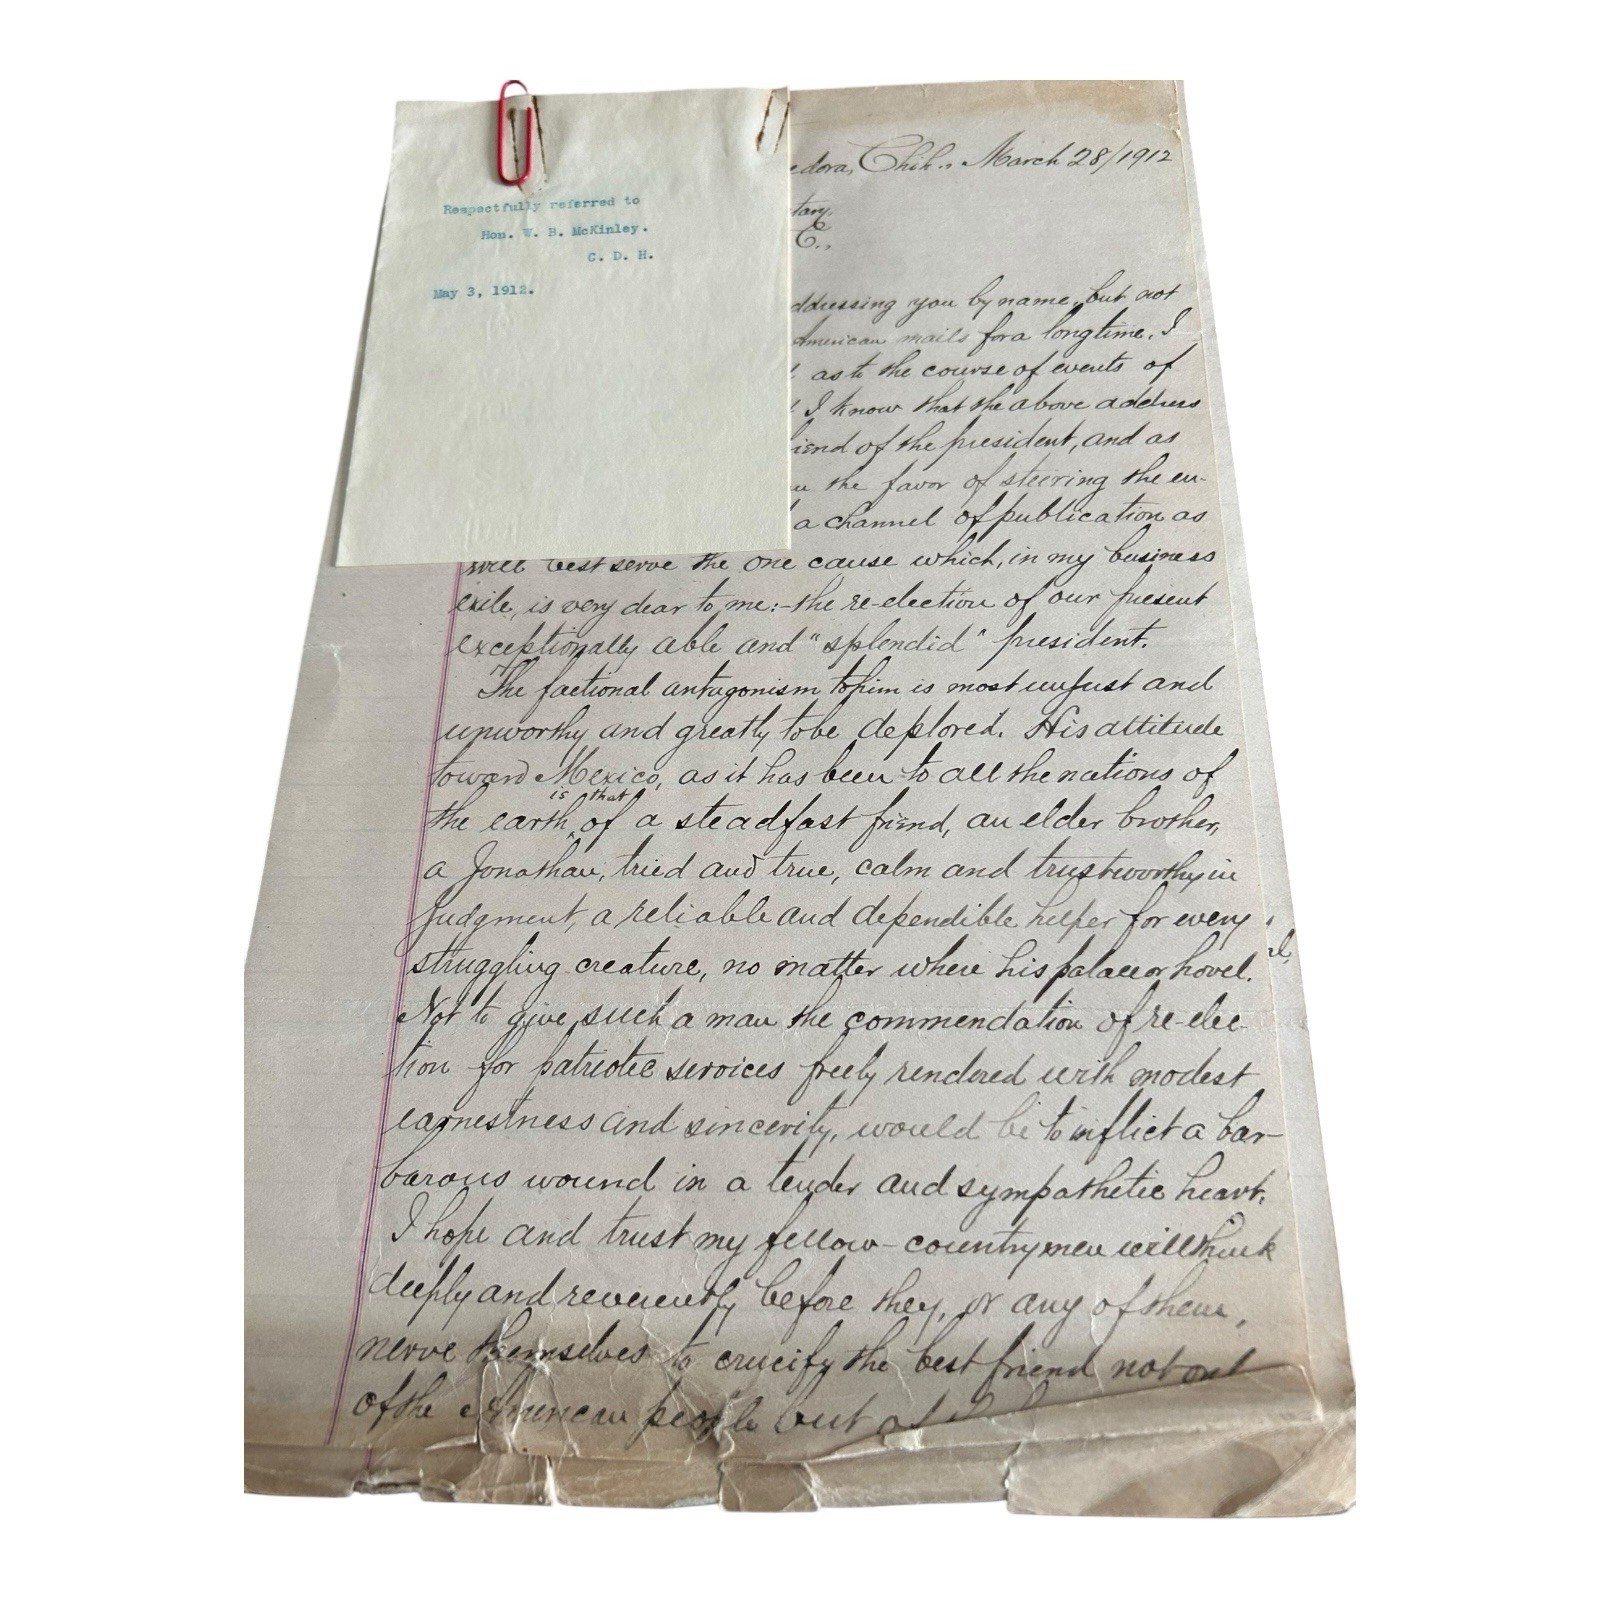 Respectfully referred to
Hon. W. B. McKinley.
C. D. H.
May 3, 1912.
edora, Chih., March 28/1912
tary,
C.,
ddressing you by name, but not
American mails for a long time, I
as to the course of events of
I know that the above address
iend of the president, and as
u the favor of steering the en-
a channel of publication as
will best serve the one cause which, in my business
exile, is very dear to me:- the re-election of our present
exceptionally able and "splendid" president.
The factional antagonism to him is most unjust and
unworthy and greatly to be deplored. His attitude
toward Mexico, as it has been to all the nations of
is that
the earth ^ of a steadfast friend, an elder brother,
a Jonathan, tried and true, calm and trustworthy in
judgment, a reliable and dependible helper for every
struggling creature, no matter where his palace or hovel.
Not to give such a man the commendation of re-elec-
tion for patriotic services freely rendered with modest
earnestness and sincerity, would be to inflict a bar-
barous wound in a tender and sympathetic heart.
I hope and trust my fellow-countrymen will think
deeply and reverently before they, or any of them,
nerve themselves to crucify the best friend not only
of the American people but of